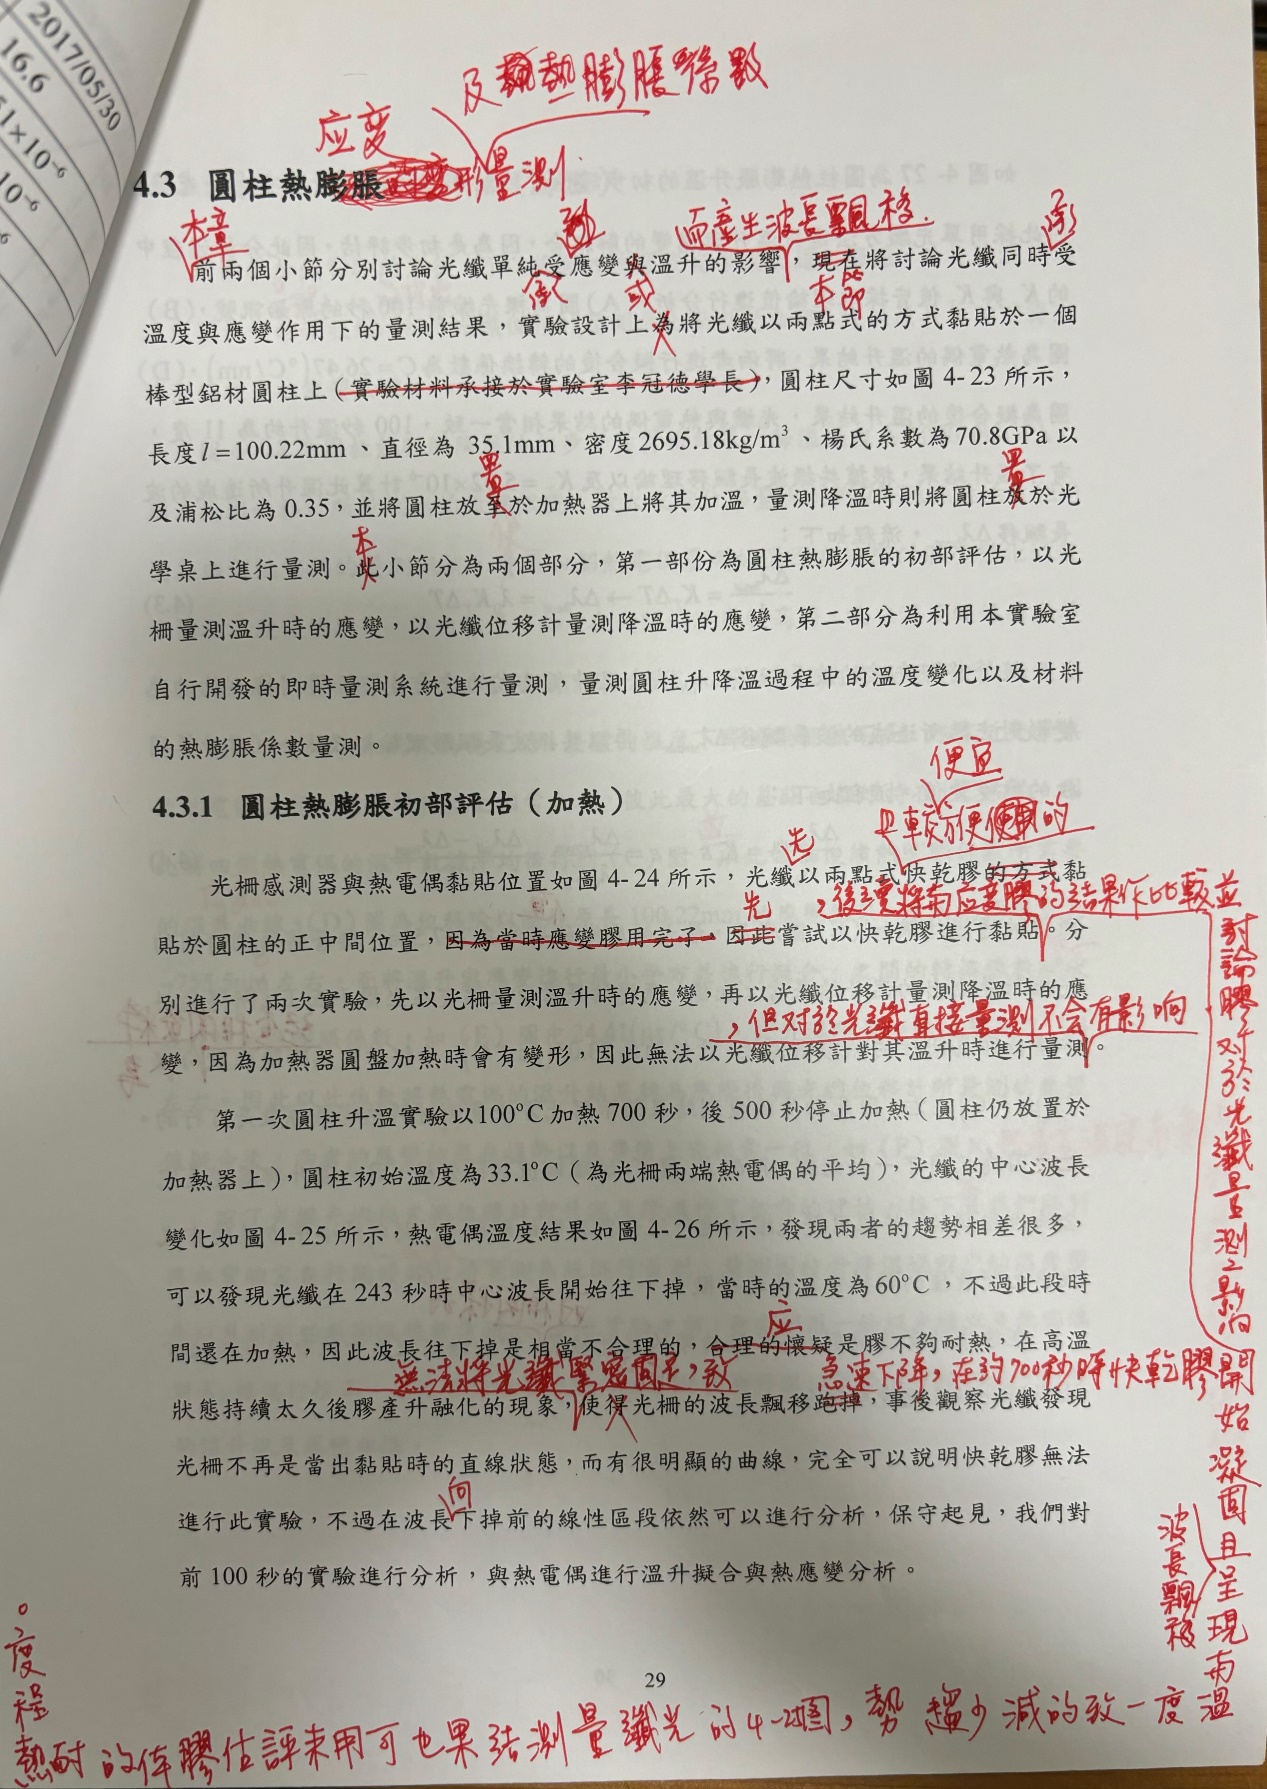 2017/05/30
16.6
1×10⁻⁶
10⁻⁶
及熱膨脹係數
应变
4.3 圓柱熱膨脹形量測
本章
而產生波長飄移
承
前兩個小節分別討論光纖單純受應變與溫升的影響，現在將討論光纖同時受
或
本節即
溫度與應變作用下的量測結果，實驗設計上為將光纖以兩點式的方式黏貼於一個
棒型鋁材圓柱上（實驗材料承接於實驗室李冠德學長），圓柱尺寸如圖 4-23 所示，
長度 l = 100.22mm 、直徑為 35.1mm、密度 2695.18kg/m³ 、楊氏系數為 70.8GPa 以
置
置
及浦松比為 0.35，並將圓柱放至於加熱器上將其加溫，量測降溫時則將圓柱放於光
本
學桌上進行量測。此小節分為兩個部分，第一部份為圓柱熱膨脹的初部評估，以光
柵量測溫升時的應變，以光纖位移計量測降溫時的應變，第二部分為利用本實驗室
自行開發的即時量測系統進行量測，量測圓柱升降溫過程中的溫度變化以及材料
的熱膨脹係數量測。
便宜
4.3.1 圓柱熱膨脹初部評估（加熱）
先
且較方便使用的
光柵感測器與熱電偶黏貼位置如圖 4-24 所示，光纖以兩點式快乾膠的方式黏
先
，後續將與应变膠的結果作比較並討論膠對於光纖量測之影响
貼於圓柱的正中間位置，因為當時應變膠用完了，因此嘗試以快乾膠進行黏貼。分
別進行了兩次實驗，先以光柵量測溫升時的應變，再以光纖位移計量測降溫時的應
，但对於光纖直接量測不会有影响
變，因為加熱器圓盤加熱時會有變形，因此無法以光纖位移計對其溫升時進行量測。
第一次圓柱升溫實驗以100°C 加熱 700 秒，後 500 秒停止加熱（圓柱仍放置於
加熱器上），圓柱初始溫度為33.1°C（為光柵兩端熱電偶的平均），光纖的中心波長
變化如圖 4-25 所示，熱電偶溫度結果如圖 4-26 所示，發現兩者的趨勢相差很多，
可以發現光纖在 243 秒時中心波長開始往下掉，當時的溫度為60°C ，不過此段時
应
間還在加熱，因此波長往下掉是相當不合理的，合理的懷疑是膠不夠耐熱，在高溫
無法將光纖緊密固定，致
急速下降，在約700秒時快乾膠開始凝固且呈現與溫度一致的減少趨勢，圖4-25的光纖量測結果也可用來評估膠体的耐熱程度。
波長飄移
狀態持續太久後膠產升融化的現象，使得光柵的波長飄移跑掉，事後觀察光纖發現
光柵不再是當出黏貼時的直線狀態，而有很明顯的曲線，完全可以說明快乾膠無法
向
進行此實驗，不過在波長下掉前的線性區段依然可以進行分析，保守起見，我們對
前 100 秒的實驗進行分析，與熱電偶進行溫升擬合與熱應變分析。
29